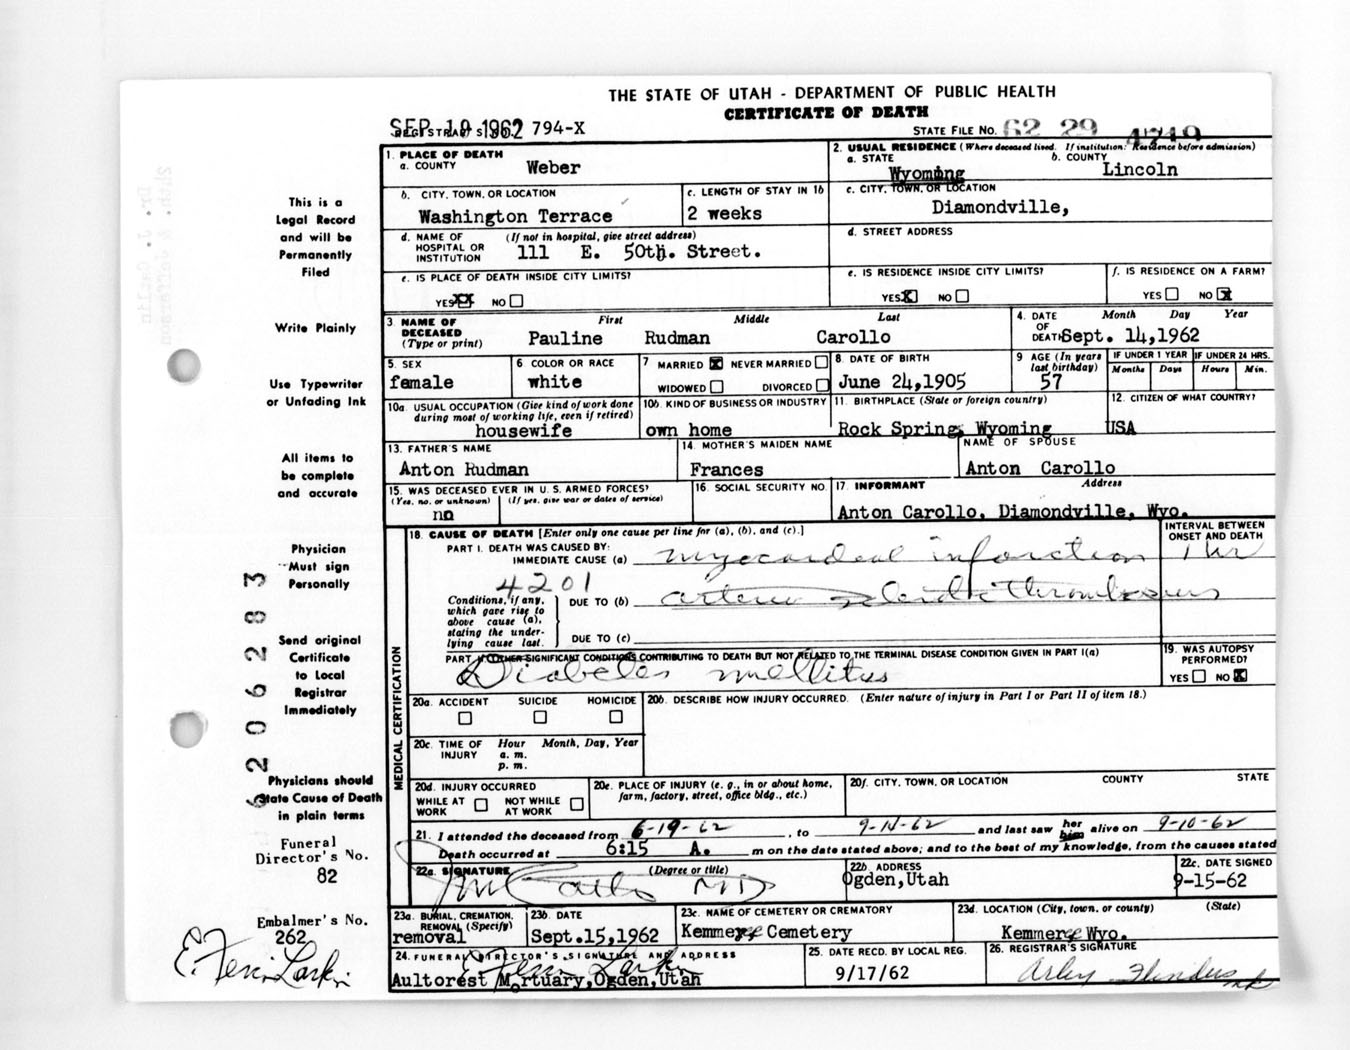 THE STATE OF UTAH - DEPARTMENT OF PUBLIC HEALTH
CERTIFICATE OF DEATH
SEP 19 1962 794-X
STATE FILE NO. 62 29 4719
1. PLACE OF DEATH
a. COUNTY Weber
2. USUAL RESIDENCE (Where deceased lived. If institution: Residence before admission)
a. STATE Wyoming b. COUNTY Lincoln
b. CITY, TOWN, OR LOCATION Washington Terrace
c. LENGTH OF STAY IN 1b 2 weeks
c. CITY, TOWN, OR LOCATION Diamondville,
d. NAME OF HOSPITAL OR INSTITUTION (If not in hospital, give street address) 111 E. 50th. Street.
d. STREET ADDRESS
e. IS PLACE OF DEATH INSIDE CITY LIMITS? YES XX NO
e. IS RESIDENCE INSIDE CITY LIMITS? YES X NO
f. IS RESIDENCE ON A FARM? YES NO X
3 NAME OF DECEASED (Type or print) First Middle Last
Pauline Rudman Carollo
4. DATE OF DEATH Month Day Year
Sept. 14,1962
5. SEX female
6 COLOR OR RACE white
7 MARRIED X NEVER MARRIED WIDOWED DIVORCED
8 DATE OF BIRTH June 24,1905
9 AGE (In years last birthday) 57
IF UNDER 1 YEAR Months Days
IF UNDER 24 HRS. Hours Min.
10a. USUAL OCCUPATION (Give kind of work done during most of working life, even if retired) housewife
10b. KIND OF BUSINESS OR INDUSTRY own home
11. BIRTHPLACE (State or foreign country) Rock Spring, Wyoming
12. CITIZEN OF WHAT COUNTRY? USA
13. FATHER'S NAME Anton Rudman
14. MOTHER'S MAIDEN NAME Frances
NAME OF SPOUSE Anton Carollo
15. WAS DECEASED EVER IN U. S. ARMED FORCES? (Yes, no, or unknown) (If yes, give war or dates of service) no
16. SOCIAL SECURITY NO.
17. INFORMANT Address
Anton Carollo, Diamondville, Wyo.
MEDICAL CERTIFICATION
18. CAUSE OF DEATH [Enter only one cause per line for (a), (b), and (c).]
INTERVAL BETWEEN ONSET AND DEATH
PART I. DEATH WAS CAUSED BY:
IMMEDIATE CAUSE (a) myocardeal infarction 1 hr
4201
Conditions, if any, which gave rise to above cause (a), stating the underlying cause last.
DUE TO (b) thrombosis
DUE TO (c)
PART II. OTHER SIGNIFICANT CONDITIONS CONTRIBUTING TO DEATH BUT NOT RELATED TO THE TERMINAL DISEASE CONDITION GIVEN IN PART I(a)
Diabetes mellitus
19. WAS AUTOPSY PERFORMED? YES NO X
20a. ACCIDENT SUICIDE HOMICIDE
20b. DESCRIBE HOW INJURY OCCURRED. (Enter nature of injury in Part I or Part II of item 18.)
20c. TIME OF INJURY Hour a. m. p. m. Month, Day, Year
20d. INJURY OCCURRED WHILE AT WORK NOT WHILE AT WORK
20e. PLACE OF INJURY (e. g., in or about home, farm, factory, street, office bldg., etc.)
20f. CITY, TOWN, OR LOCATION COUNTY STATE
21. I attended the deceased from 6-19-62, to 9-14-62 and last saw her him alive on 9-10-62
Death occurred at 6:15 A. m on the date stated above; and to the best of my knowledge, from the causes stated
22a. SIGNATURE (Degree or title) MD
22b ADDRESS Ogden,Utah
22c. DATE SIGNED 9-15-62
23a. BURIAL, CREMATION, REMOVAL (Specify) removal
23b. DATE Sept.15,1962
23c. NAME OF CEMETERY OR CREMATORY Kemmerer Cemetery
23d. LOCATION (City, town, or county) (State) Kemmerer Wyo.
24. FUNERAL DIRECTOR'S SIGNATURE AND ADDRESS
E. Ferrin Larkin
Aultorest Mortuary,Ogden,Utah
25. DATE RECD. BY LOCAL REG. 9/17/62
26. REGISTRAR'S SIGNATURE
Arley Flinders
This is a
Legal Record
and will be
Permanently
Filed
Write Plainly
Use Typewriter
or Unfading Ink
All items to
be complete
and accurate
Physician
Must sign
Personally
Send original
Certificate
to Local
Registrar
Immediately
Physicians should
State Cause of Death
in plain terms
Funeral
Director's No.
82
Embalmer's No.
262
E. Ferrin Larkin